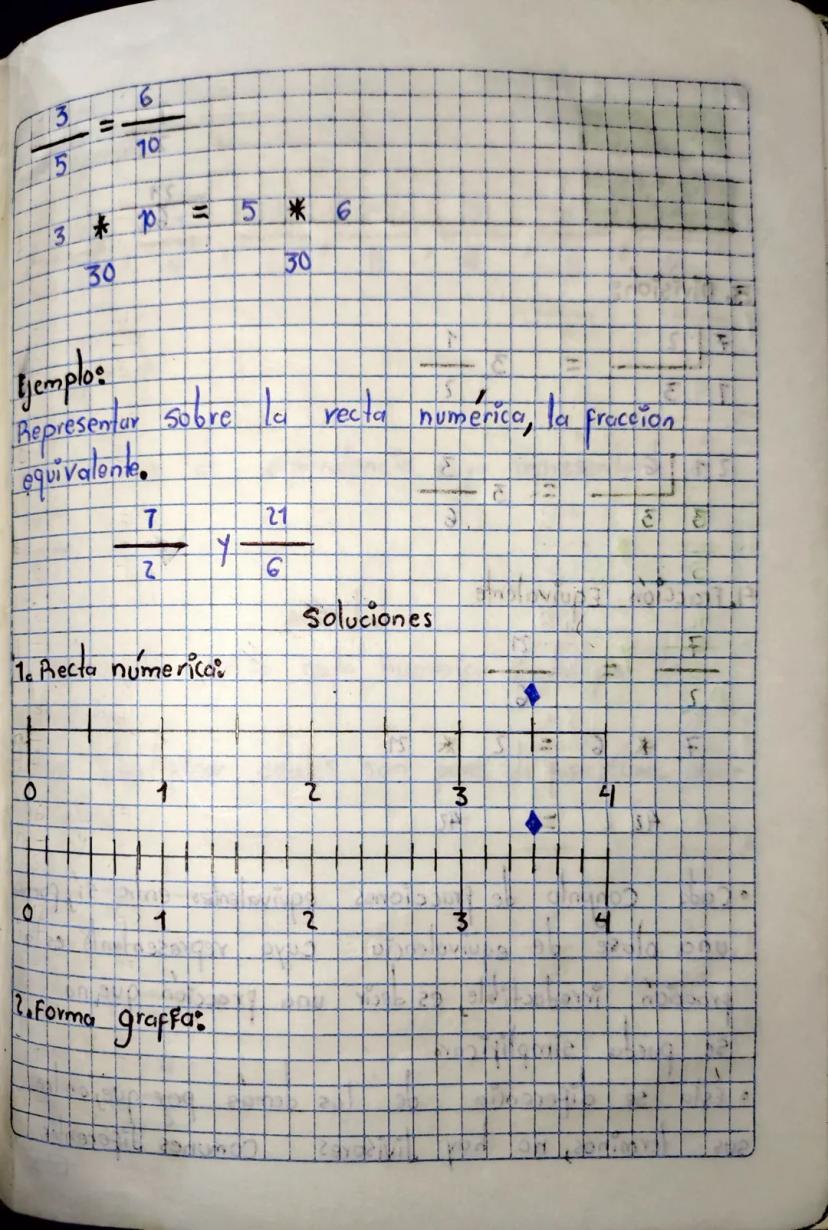 3/5 = 6/10
3 * 10 = 5 * 6
30 30
Ejemplo:
Representar sobre la recta numérica, la fraccion
equivalente.
7/2 y 21/6
Soluciones
1. Recta númerica:
0 1 2 3 4
0 1 2 3 4
2. Forma graffa: